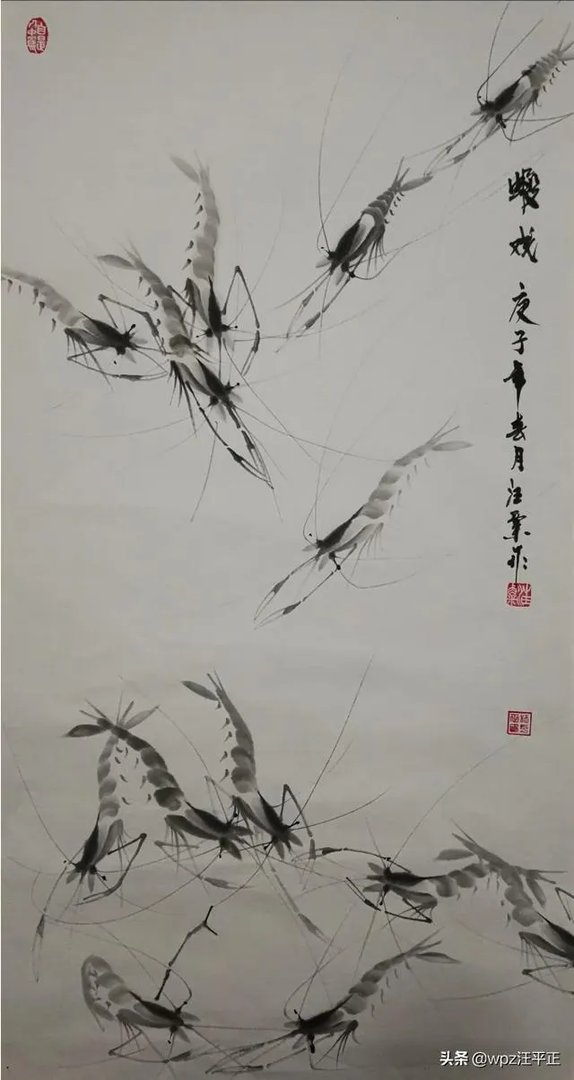 蝦戏 庚子年春月汪業作
头条 @wpz汪平正